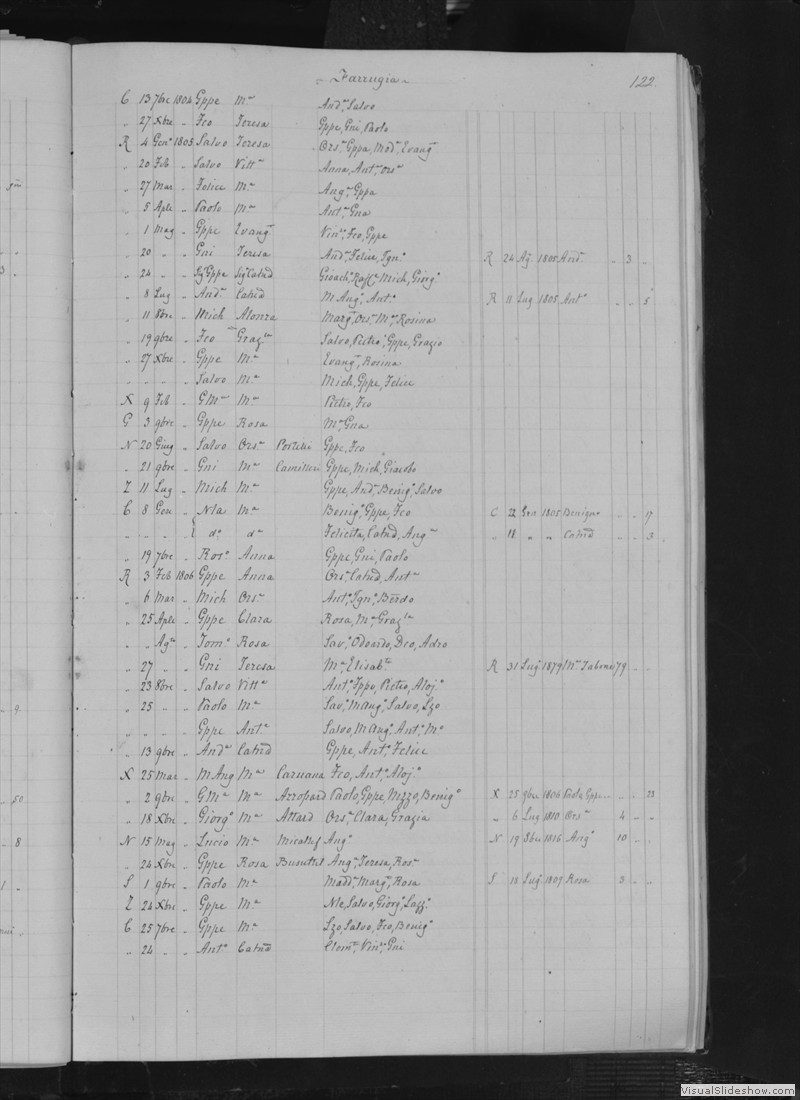 Farrugia 122
C 13 7bre 1804 Gppe Ma Andra Salvo
" 27 Xbre " Fco Teresa Gppe, Gni, Paolo
R 4 Geno 1805 Salvo Teresa Orsa Gppa, Mada, Evanga
" 20 Feb " Salvo Vitta Anna, Anta, Orsa
" 27 Mar " Felice Ma Anga, Gppa
" 5 Aple " Paolo Ma Anta, Gna
" 1 Mag " Gppe Evanga Vinso, Fco, Gppe
" 20 " " Gni Teresa Anda, Felice, Igno R 24 Ago 1808 And. " 3 "
" 24 " " Sigr Gppe Siga Catnd Gioach, Raffle, Mich, Giorgo
" 8 Lug " Anda Catnd M Ango, Anto R 11 Lug 1805 Anto " " 5
" 11 8bre " Mich Alonza Marga, Orsa, Ma, Rosina
" 19 9bre " Fco Graza Salvo, Pietro, Gppe, Grazio
" 27 Xbre " Gppe Ma Evanga, Rosina
" " " " Salvo Ma Mich, Gppe, Felice
X 9 Feb " GMa Ma Pietro, Fco
G 3 9bre " Gppe Rosa Ma, Gna
N 20 Giug " Salvo Orsa Portelli Gppe, Fco
" 21 9bre " Gni Ma Camilleri Gppe, Mich, Giacobo
Z 11 Lug " Mich Ma Gppe, Anda, Benigo, Salvo
C 8 Gen " Nla Ma Benigo, Gppe, Fco C 22 Gen 1805 Benigno " " 17
" " " " do do Felicita, Catnd, Anga " 18 " " Catnd " " 3
" 19 7bre " Roso Anna Gppe, Gni, Paolo
R 3 Feb 1806 Gppe Anna Orsa, Catnd, Anta
" 6 Mar " Mich Orsa Anto, Igno, Berdo
" 25 Aple " Gppe Clara Rosa, Ma Graza
" " Ago " Tomo Rosa Savo, Odoardo, Dco, Adro
" 27 " " Gni Teresa Ma, Elisaba R 31 Lug 1879 Ma Tabone 79 " "
" 23 8bre " Salvo Vitta Anto, Fppo, Pietro, Alojo
" 25 " " Paolo Ma Savo, MAngo, Salvo, Lzo
" " " " Gppe Anta Salvo, MAngo, Anto, Mo
" 13 9bre " Anda Catnd Gppe, Anto, Felice
X 25 Mar " MAng Ma Caruana Fco, Anto, Alojo
" 2 9bre " GMa Ma Azzopard Paolo, Gppe, Nizzo, Benigo X 25 9bre 1806 Paolo, Gppe " " 23
" 18 Xbre " Giorgo Ma Attard Orsa, Clara, Grazia " 6 Lug 1810 Orsa 4 " "
N 15 Mag " Lucio Ma Micallef Ango N 19 8bre 1816 Ango 10 " "
" 24 Xbre " Gppe Rosa Busuttil Anga, Teresa, Rosa
S 1 9bre " Paolo Ma Madda, Marga, Rosa S 18 Lug 1809 Rosa 3 " "
Z 24 Xbre " Gppe Ma Nle, Salvo, Giorgo
C 25 7bre " Gppe Ma Lzo, Salvo, Fco, Benigo
" 24 " Anto Catnd Clema, Vino, Gni
VisualSlideshow.com